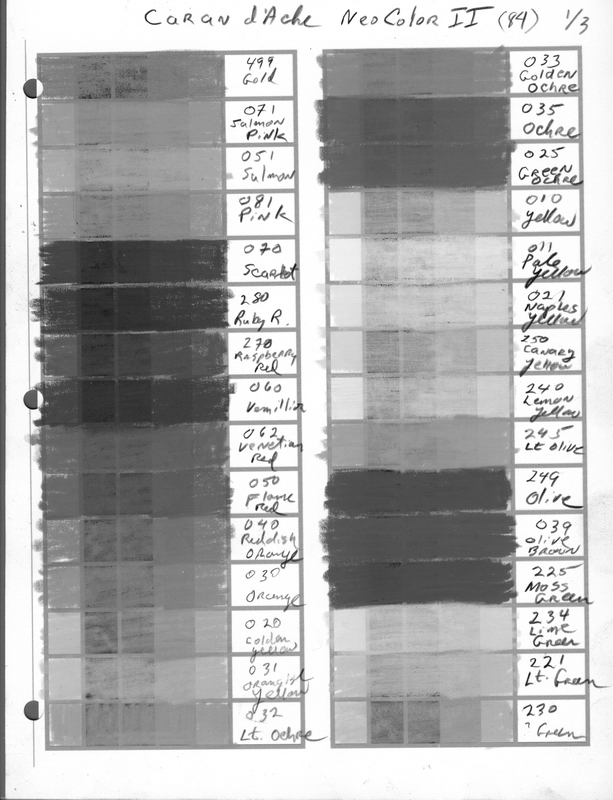 Caran d'Ache NeoColor II (84) 1/3
499
Gold
071
Salmon
Pink
051
Salmon
081
Pink
070
Scarlet
280
Ruby R.
270
Raspberry
Red
060
Vermillion
062
Venetian
Red
050
Flame
Red
040
Reddish
Orange
030
Orange
020
Golden
Yellow
031
Orangish
Yellow
032
Lt. Ochre
033
Golden
Ochre
035
Ochre
025
Green
Ochre
010
Yellow
011
Pale
Yellow
021
Naples
Yellow
250
Canary
Yellow
240
Lemon
Yellow
245
Lt Olive
249
Olive
039
Olive
Brown
225
Moss
Green
234
Lime
Green
221
Lt. Green
230
? Green